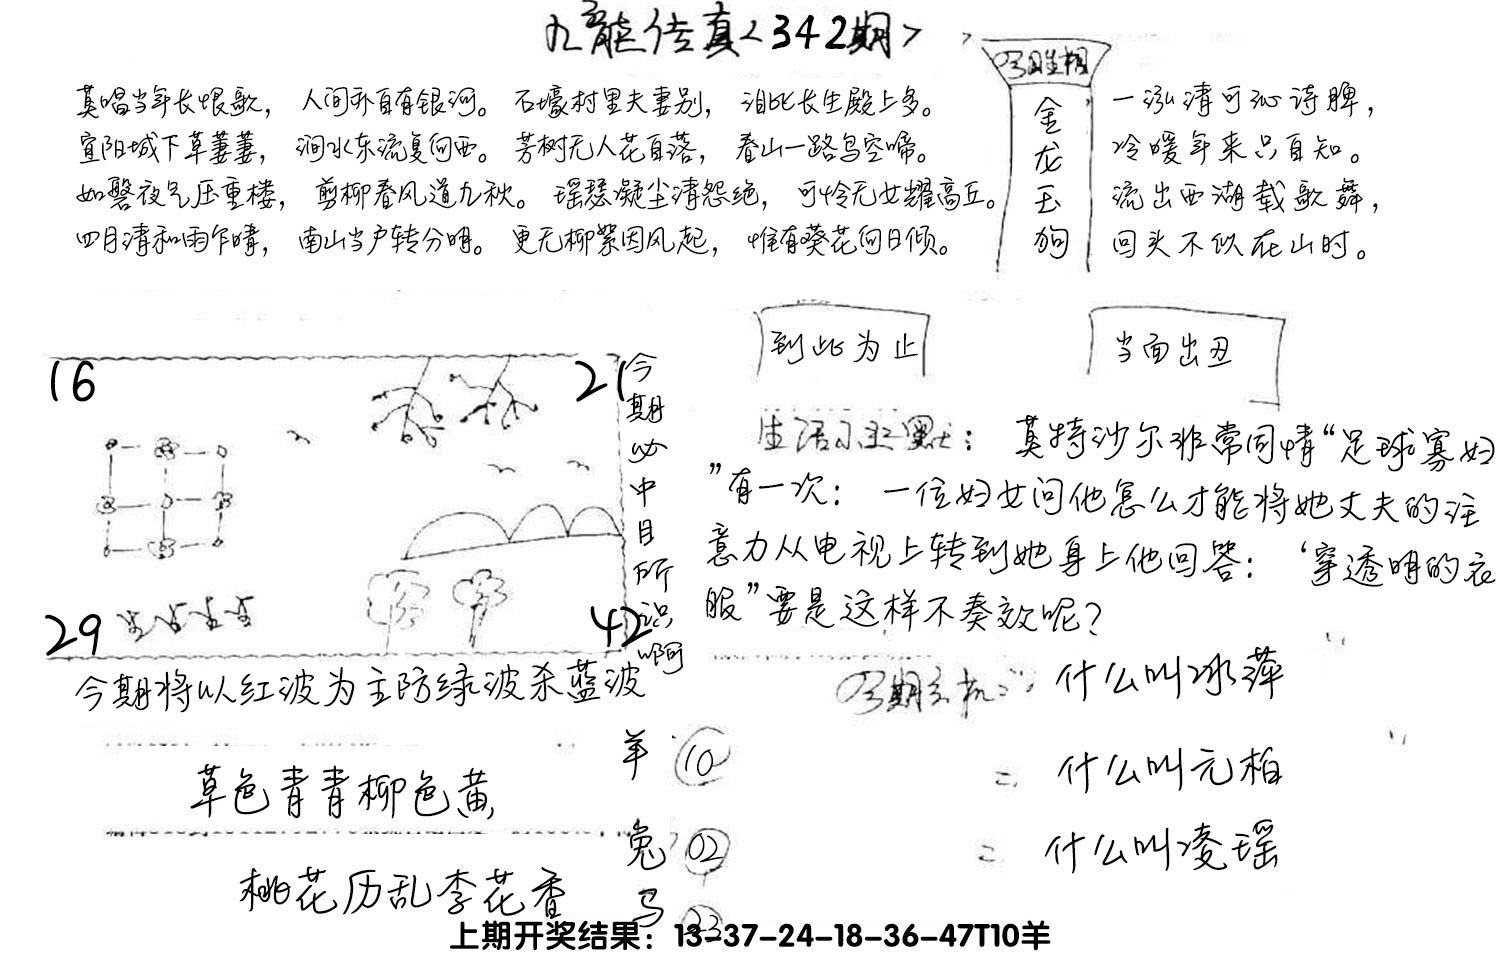 九龍传真<342期>
莫唱当年长恨歌，人间亦自有银河。石壕村里夫妻别，泪比长生殿上多。
宜阳城下草萋萋，涧水东流复向西。芳树无人花自落，春山一路鸟空啼。
如磐夜气压重楼，剪柳春风道九秋。瑶瑟凝尘清怨绝，可怜无女耀高丘。
四月清和雨乍晴，南山当户转分明。更无柳絮因风起，惟有葵花向日倾。
金龙玉狗
一泓清可沁诗脾，
冷暖年来只自知。
流出西湖载歌舞，
回头不似在山时。
到此为止
当面出丑
16
21
29
42
今期必中目所识啊
生活小幽默：莫特沙尔非常同情“足球寡妇
”有一次：一位妇女问他怎么才能将她丈夫的注
意力从电视上转到她身上他回答：‘穿透明的衣
服”要是这样不奏效呢？
今期将以红波为主防绿波杀蓝波
今期玄机
什么叫冰萍
什么叫元柏
什么叫凌瑶
草色青青柳色黄
桃花历乱李花香
羊 10
兔 02
马 23
上期开奖结果：13-37-24-18-36-47T10羊